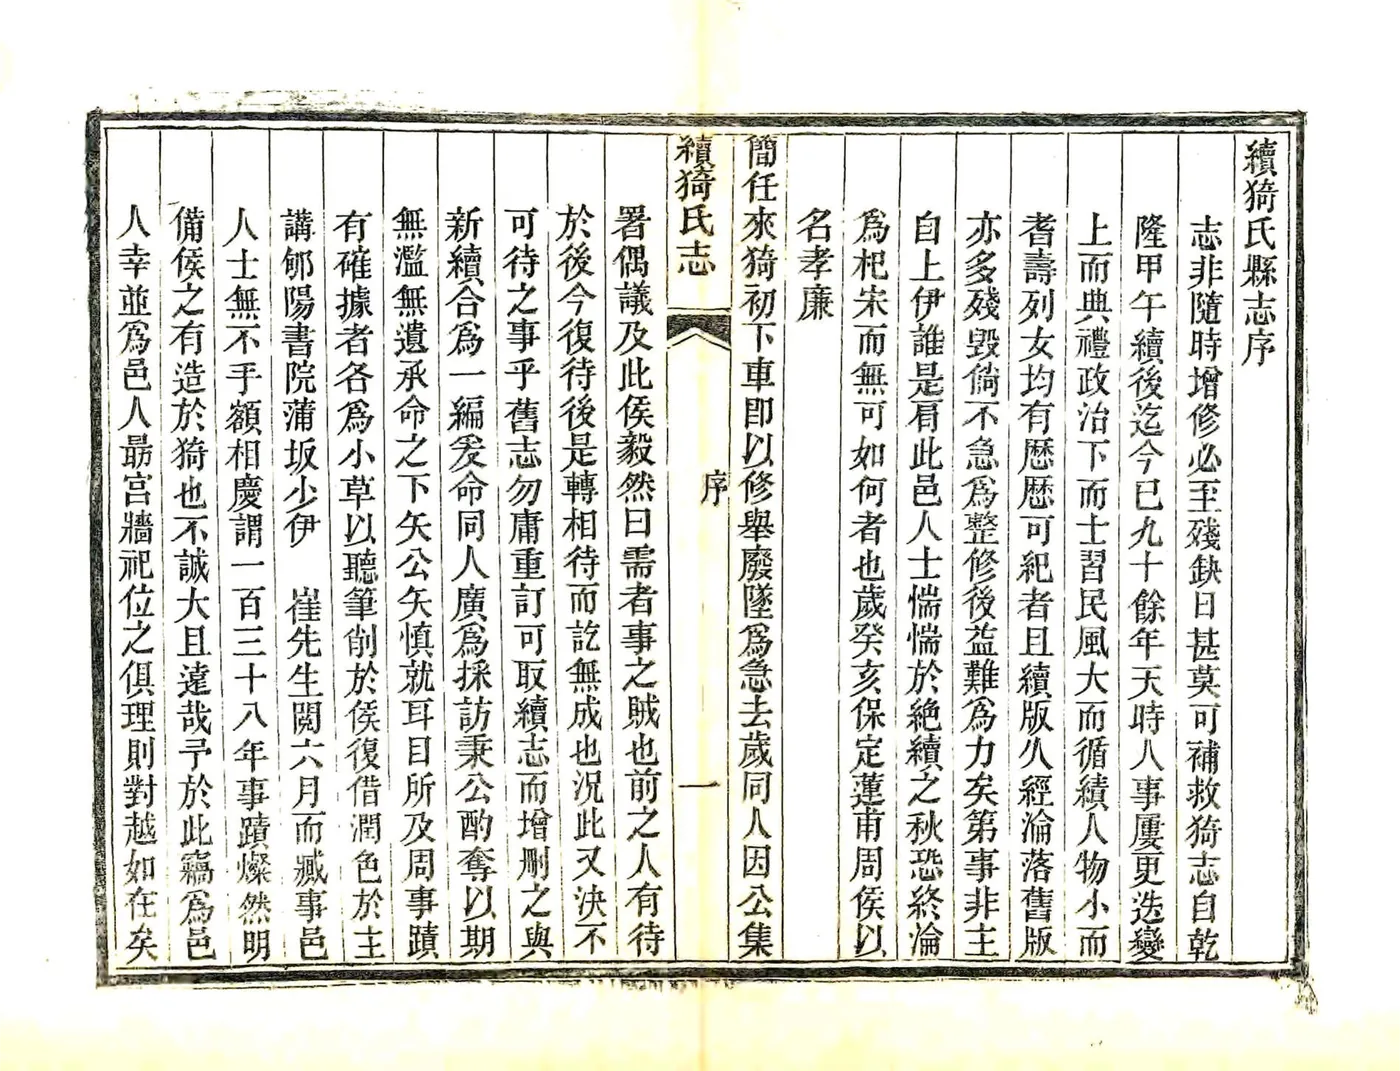 續猗氏縣志序
志非隨時增修必至殘缺日甚莫可補救猗志自乾
隆甲午續後迄今已九十餘年天時人事屢更迭變
上而典禮政治下而士習民風大而循績人物小而
耆壽列女均有歷歷可紀者且續版久經淪落舊版
亦多殘毀倘不急爲整修後益難爲力矣第事非主
自上伊誰是肩此邑人士惴惴於絶續之秋恐終淪
爲杞宋而無可如何者也歲癸亥保定蓮甫周侯以
名孝廉
簡任來猗初下車即以修舉廢墜爲急去歲同人因公集
續猗氏志
序
一
署偶議及此侯毅然曰需者事之賊也前之人有待
於後今復待後是轉相待而訖無成也況此又決不
可待之事乎舊志勿庸重訂可取續志而增刪之與
新續合爲一編爰命同人廣爲採訪秉公酌奪以期
無濫無遺承命之下矢公矢慎就耳目所及周事蹟
有確據者各爲小草以聽筆削於侯復借潤色於主
講郇陽書院蒲坂少伊　崔先生閱六月而臧事邑
人士無不手額相慶謂一百三十八年事蹟燦然明
備侯之有造於猗也不誠大且遠哉予於此竊爲邑
人幸並爲邑人勗宮牆祀位之俱理則對越如在矣